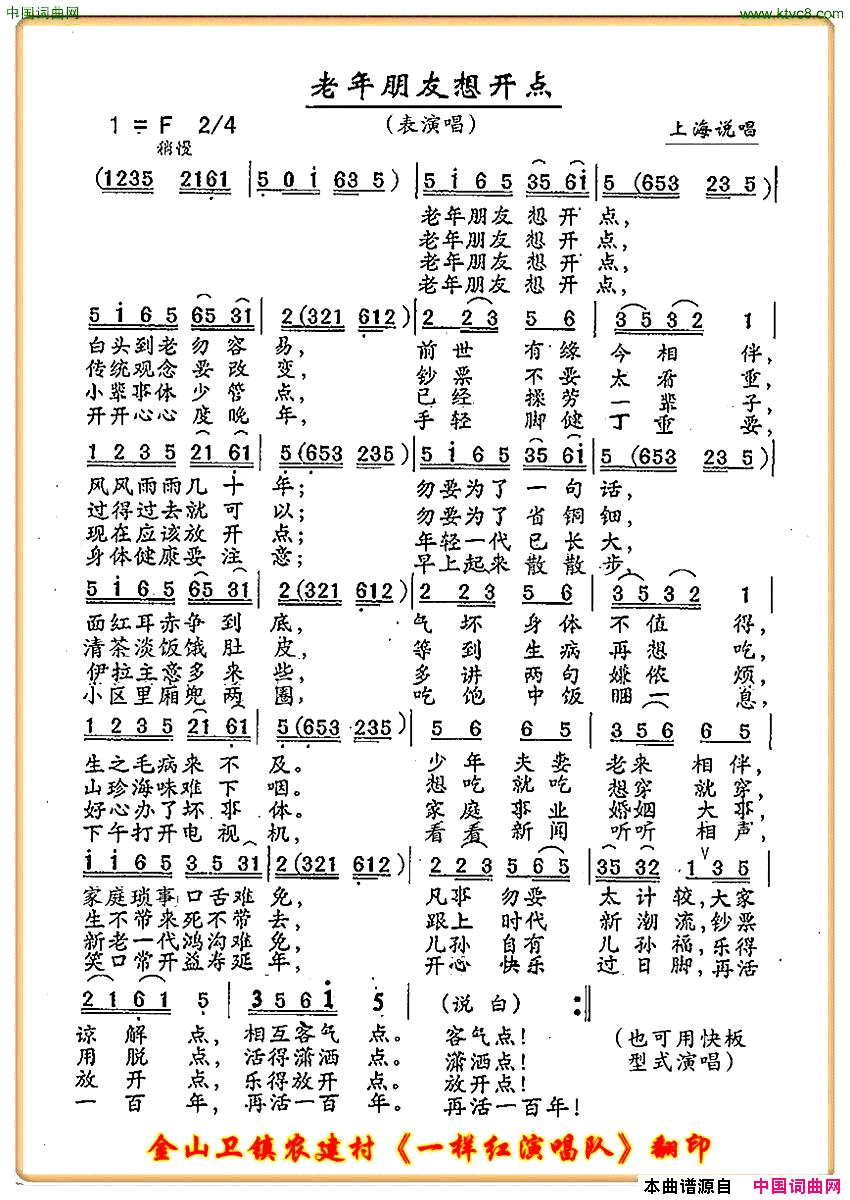 中国词曲网
www.ktvc8.com
老年朋友想开点
1 = F 2/4
(表演唱)
上海说唱
稍慢
(1235 2161 | 5 0 i 63 5) | 5 i 6 5 35 6i | 5 (653 23 5) |
老年朋友 想开 点,
老年朋友 想开 点,
老年朋友 想开 点,
老年朋友 想开 点,
5 i 6 5 65 31 | 2 (321 612) | 2 23 5 6 | 3 5 3 2 1 |
白头到老 勿容 易, 前世 有缘 今相 伴,
传统观念 要改 变, 钞票 不要 太看 重,
小辈事体 少管 点, 已经 操劳 一辈 子,
开开心心 度晚 年, 手轻 脚健 丁重 要,
1 2 3 5 21 61 | 5 (653 235) | 5 i 6 5 35 6i | 5 (653 23 5) |
风风雨雨 几十 年; 勿要为了 一句 话,
过得过去 就可 以; 勿要为了 省铜 钿,
现在应该 放开 点; 年轻一代 已长 大,
身体健康 要注 意; 早上起来 散散 步,
5 i 6 5 65 31 | 2 (321 612) | 2 23 5 6 | 3 5 3 2 1 |
面红耳赤 争到 底, 气坏 身体 不值 得,
清茶淡饭 饿肚 皮, 等到 生病 再想 吃,
伊拉主意 多来 些, 多讲 两句 嫌侬 烦,
小区里厢 兜两 圈, 吃饱 中饭 睏一 息,
1 2 3 5 21 61 | 5 (653 235) | 5 6 6 5 | 3 5 6 6 5 |
生之毛病 来不 及。 少年 夫妻 老来 相伴,
山珍海味 难下 咽。 想吃 就吃 想穿 就穿,
好心办了 坏事 体。 家庭 事业 婚姻 大事,
下午打开 电视 机, 看看 新闻 听听 相声,
i i 6 5 3 5 31 | 2 (321 612) | 2 23 5 65 | 35 32 1 3 5 |
家庭琐事 口舌难 免, 凡事 勿要 太计 较,大家
生不带来 死不带 去, 跟上 时代 新潮 流,钞票
新老一代 鸿沟难 免, 儿孙 自有 儿孙 福,乐得
笑口常开 益寿延 年, 开心 快乐 过日 脚,再活
2 1 6 1 5 | 3 5 6 i 5 | (说白) :‖
谅解 点,相互客气 点。 客气点!
用脱 点,活得潇洒 点。 潇洒点!
放开 点,乐得放开 点。 放开点!
一百 年,再活一百 年。 再活一百年!
(也可用快板
型式演唱)
金山卫镇农建村《一样红演唱队》翻印
本曲谱源自 中国词曲网